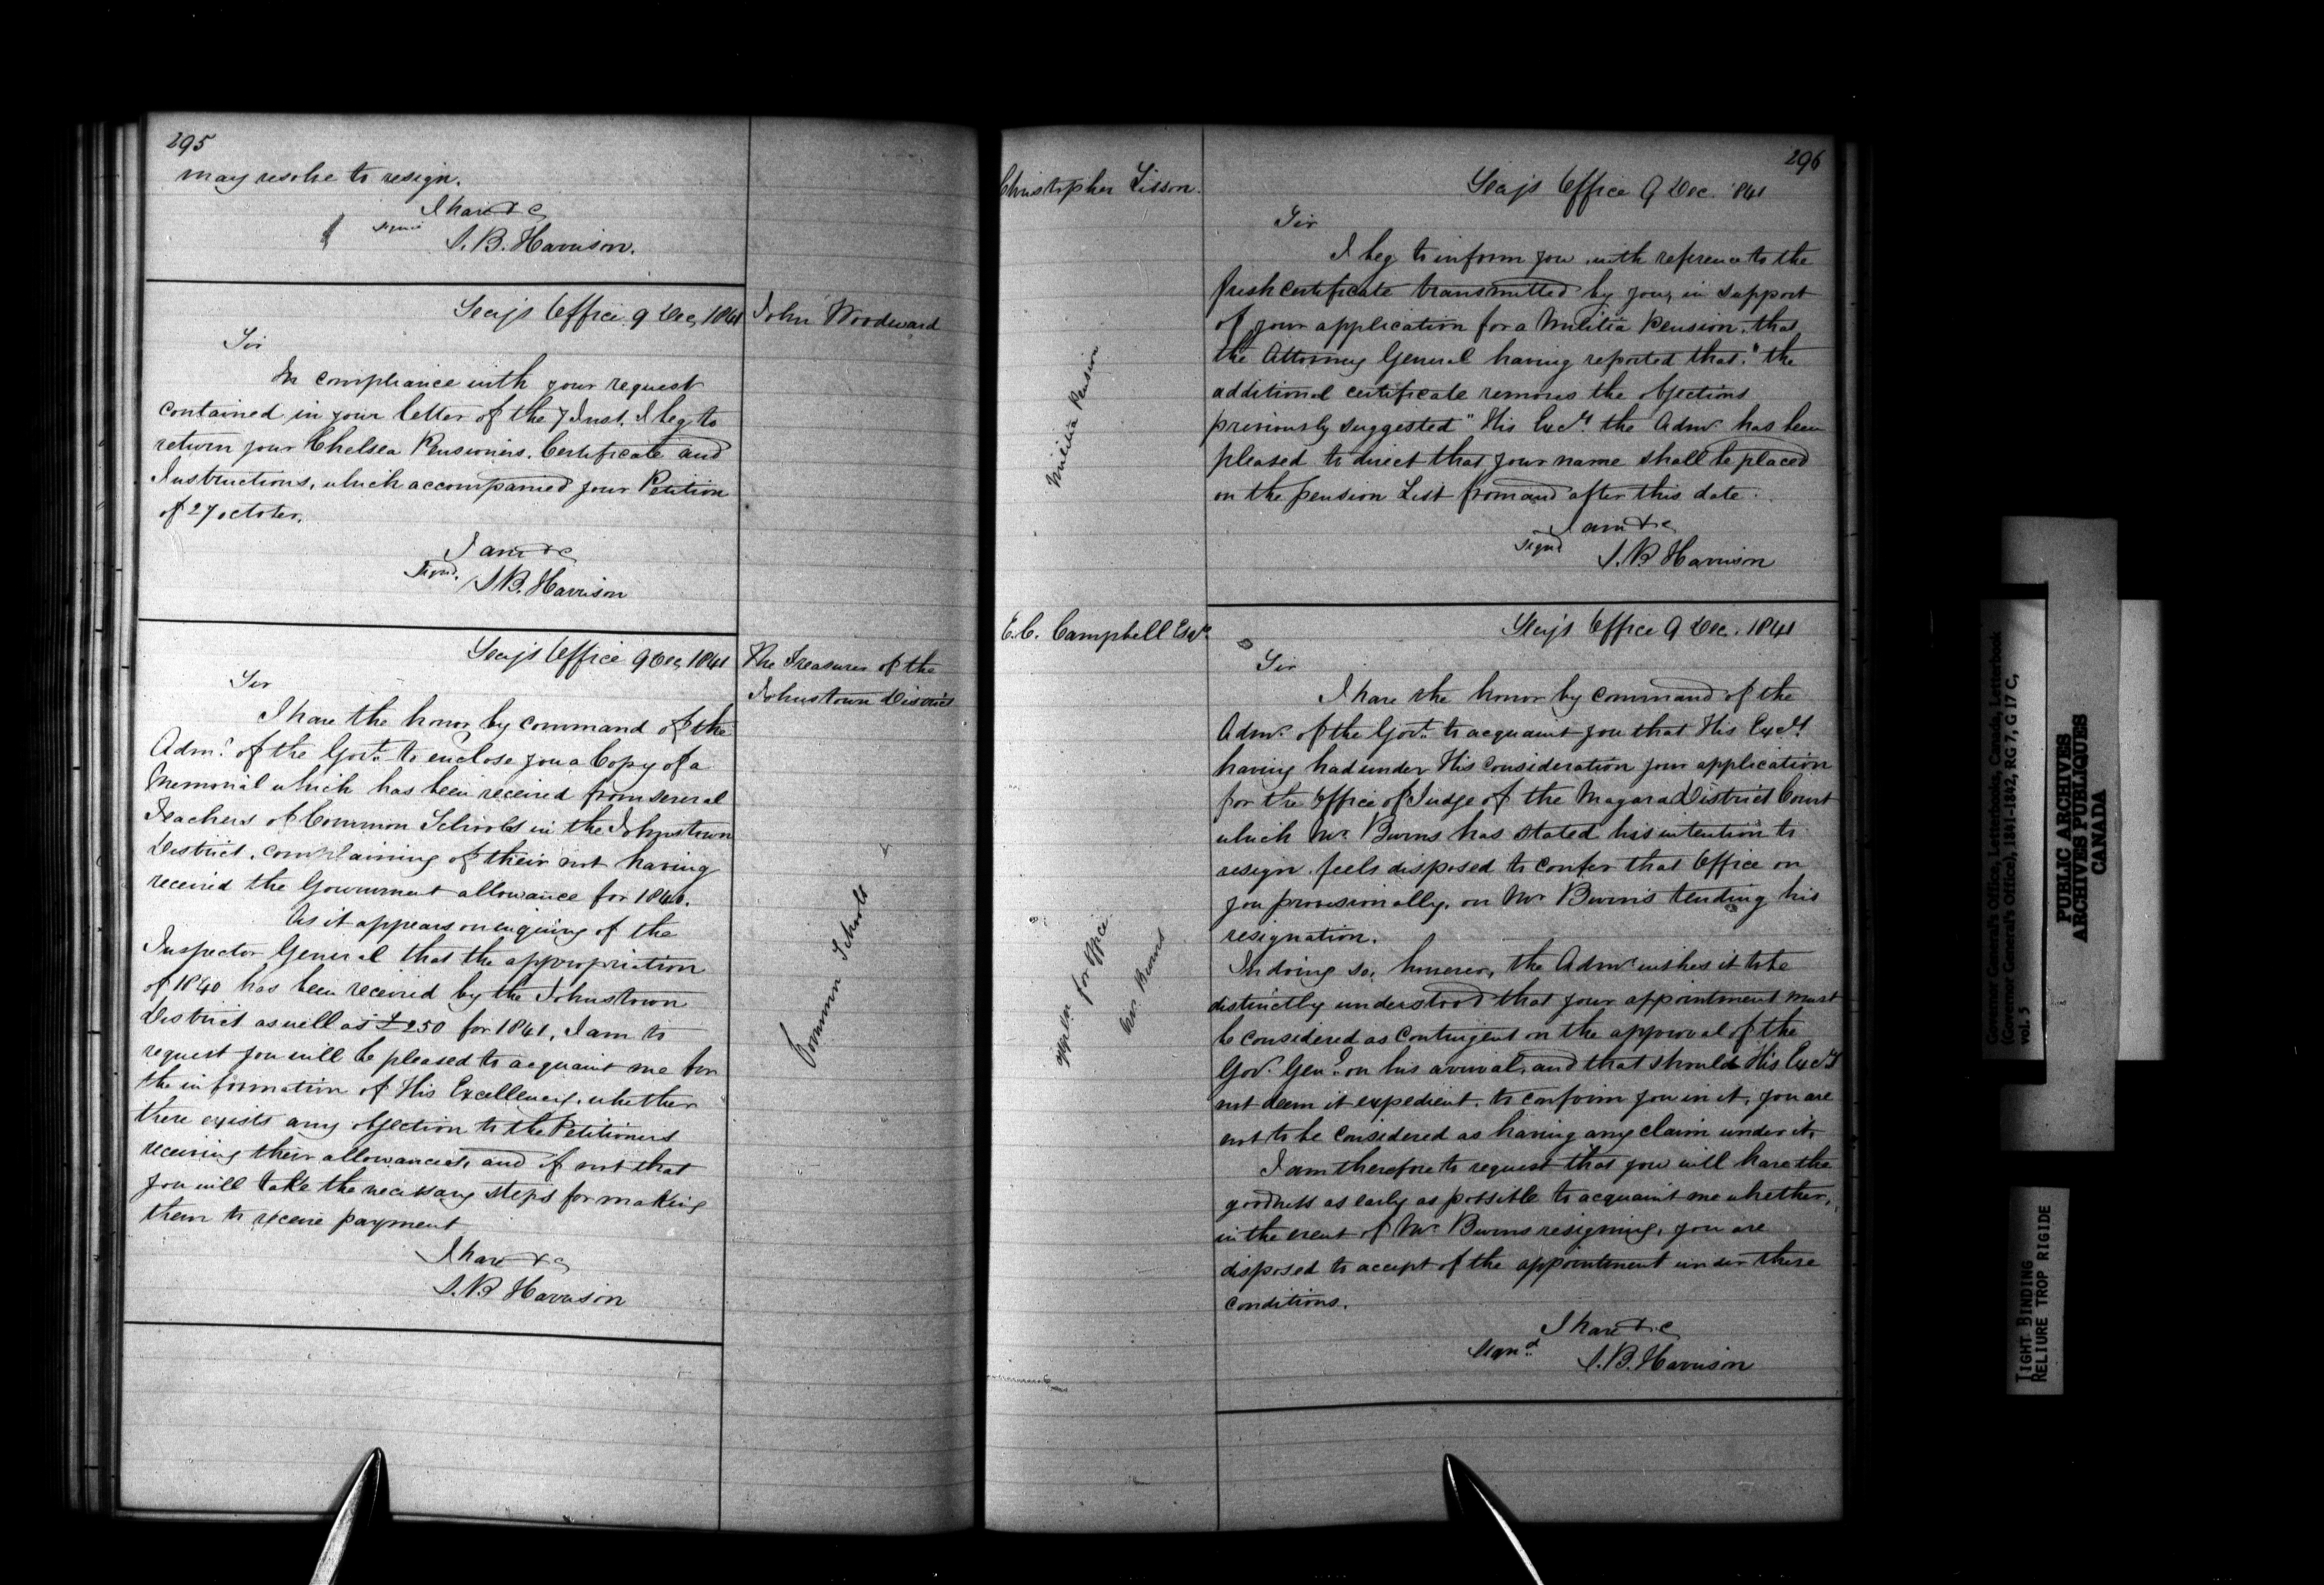 295
may resolve to resign.
I have &c
signed
S. B. Harrison.
Secy's Office 9 Dec, 1841
John Woodward
Sir
In compliance with your request
contained in your letter of the 7 Inst. I beg to
return your Chelsea Pensioners. Certificate and
Instructions, which accompanied your Petition
of 27 october.
I am &c
Signd.
S B. Harrison
Secy's Office 9 Dec, 1841
The Treasurer of the
Johnstown District
Sir
I have the honor by command of the
Admr. of the Govt. to enclose you a Copy of a
Memorial which has been received from several
Teachers of Common Schools in the Johnstown
District, complaining of their not having
received the Government allowance for 1840.
As it appears on enquiring of the
Inspector General that the appropriation
of 1840 has been received by the Johnstown
District as well as £250 for 1841, I am to
request you will be pleased to acquaint me for
the information of His Excellency, whether
there exists any objection to the Petitioners
receiving their allowances, and if not that
you will take the necessary steps for making
them to receive payment
Common Schools
I have &c
S. B Harrison
296
Christopher Lisson.
Secy's Office 9 Dec. 1841
Sir
I beg to inform you with reference to the
fresh certificate transmitted by you, in support
of your application for a Militia Pension, that
the Attorney General having reported that "the
additional certificate removes the objections
previously suggested" His Excy. the Admr. has been
pleased to direct that your name shall be placed
on the pension List from and after this date.
Militia Pension
I am &c
Signd
S. B Harrison
E. C. Campbell Esqr.
Secy's Office 9 Dec. 1841
Sir
I have the honor by command of the
Admr. of the Govt. to acquaint you that His Excy.
having had under His consideration your application
for the Office of Judge of the Niagara District Court
which Mr. Burns has stated his intention to
resign feels disposed to confer that Office on
you provisionally, on Mr Burns tending his
resignation.
In doing so, however, the Admr wishes it to be
distinctly understood that your appointment must
be considered as contingent on the approval of the
Govr. Genl. on his arrival, and that should His Excy
not deem it expedient, to confirm you in it, you are
not to be considered as having any claim under it.
I am therefore to request that you will have the
goodness as early as possible to acquaint me whether,
in the event of Mr. Burns resigning, you are
disposed to accept of the appointment under these
conditions.
Appln for Office
Mr. Burns
I have &c
Signd.
S. B. Harrison
Governor General's Office, Letterbooks, Canada, Letterbook
(Governor General's Office), 1841-1842, RG 7, G 17 C,
vol. 5
PUBLIC ARCHIVES
ARCHIVES PUBLIQUES
CANADA
TIGHT BINDING
RELIURE TROP RIGIDE